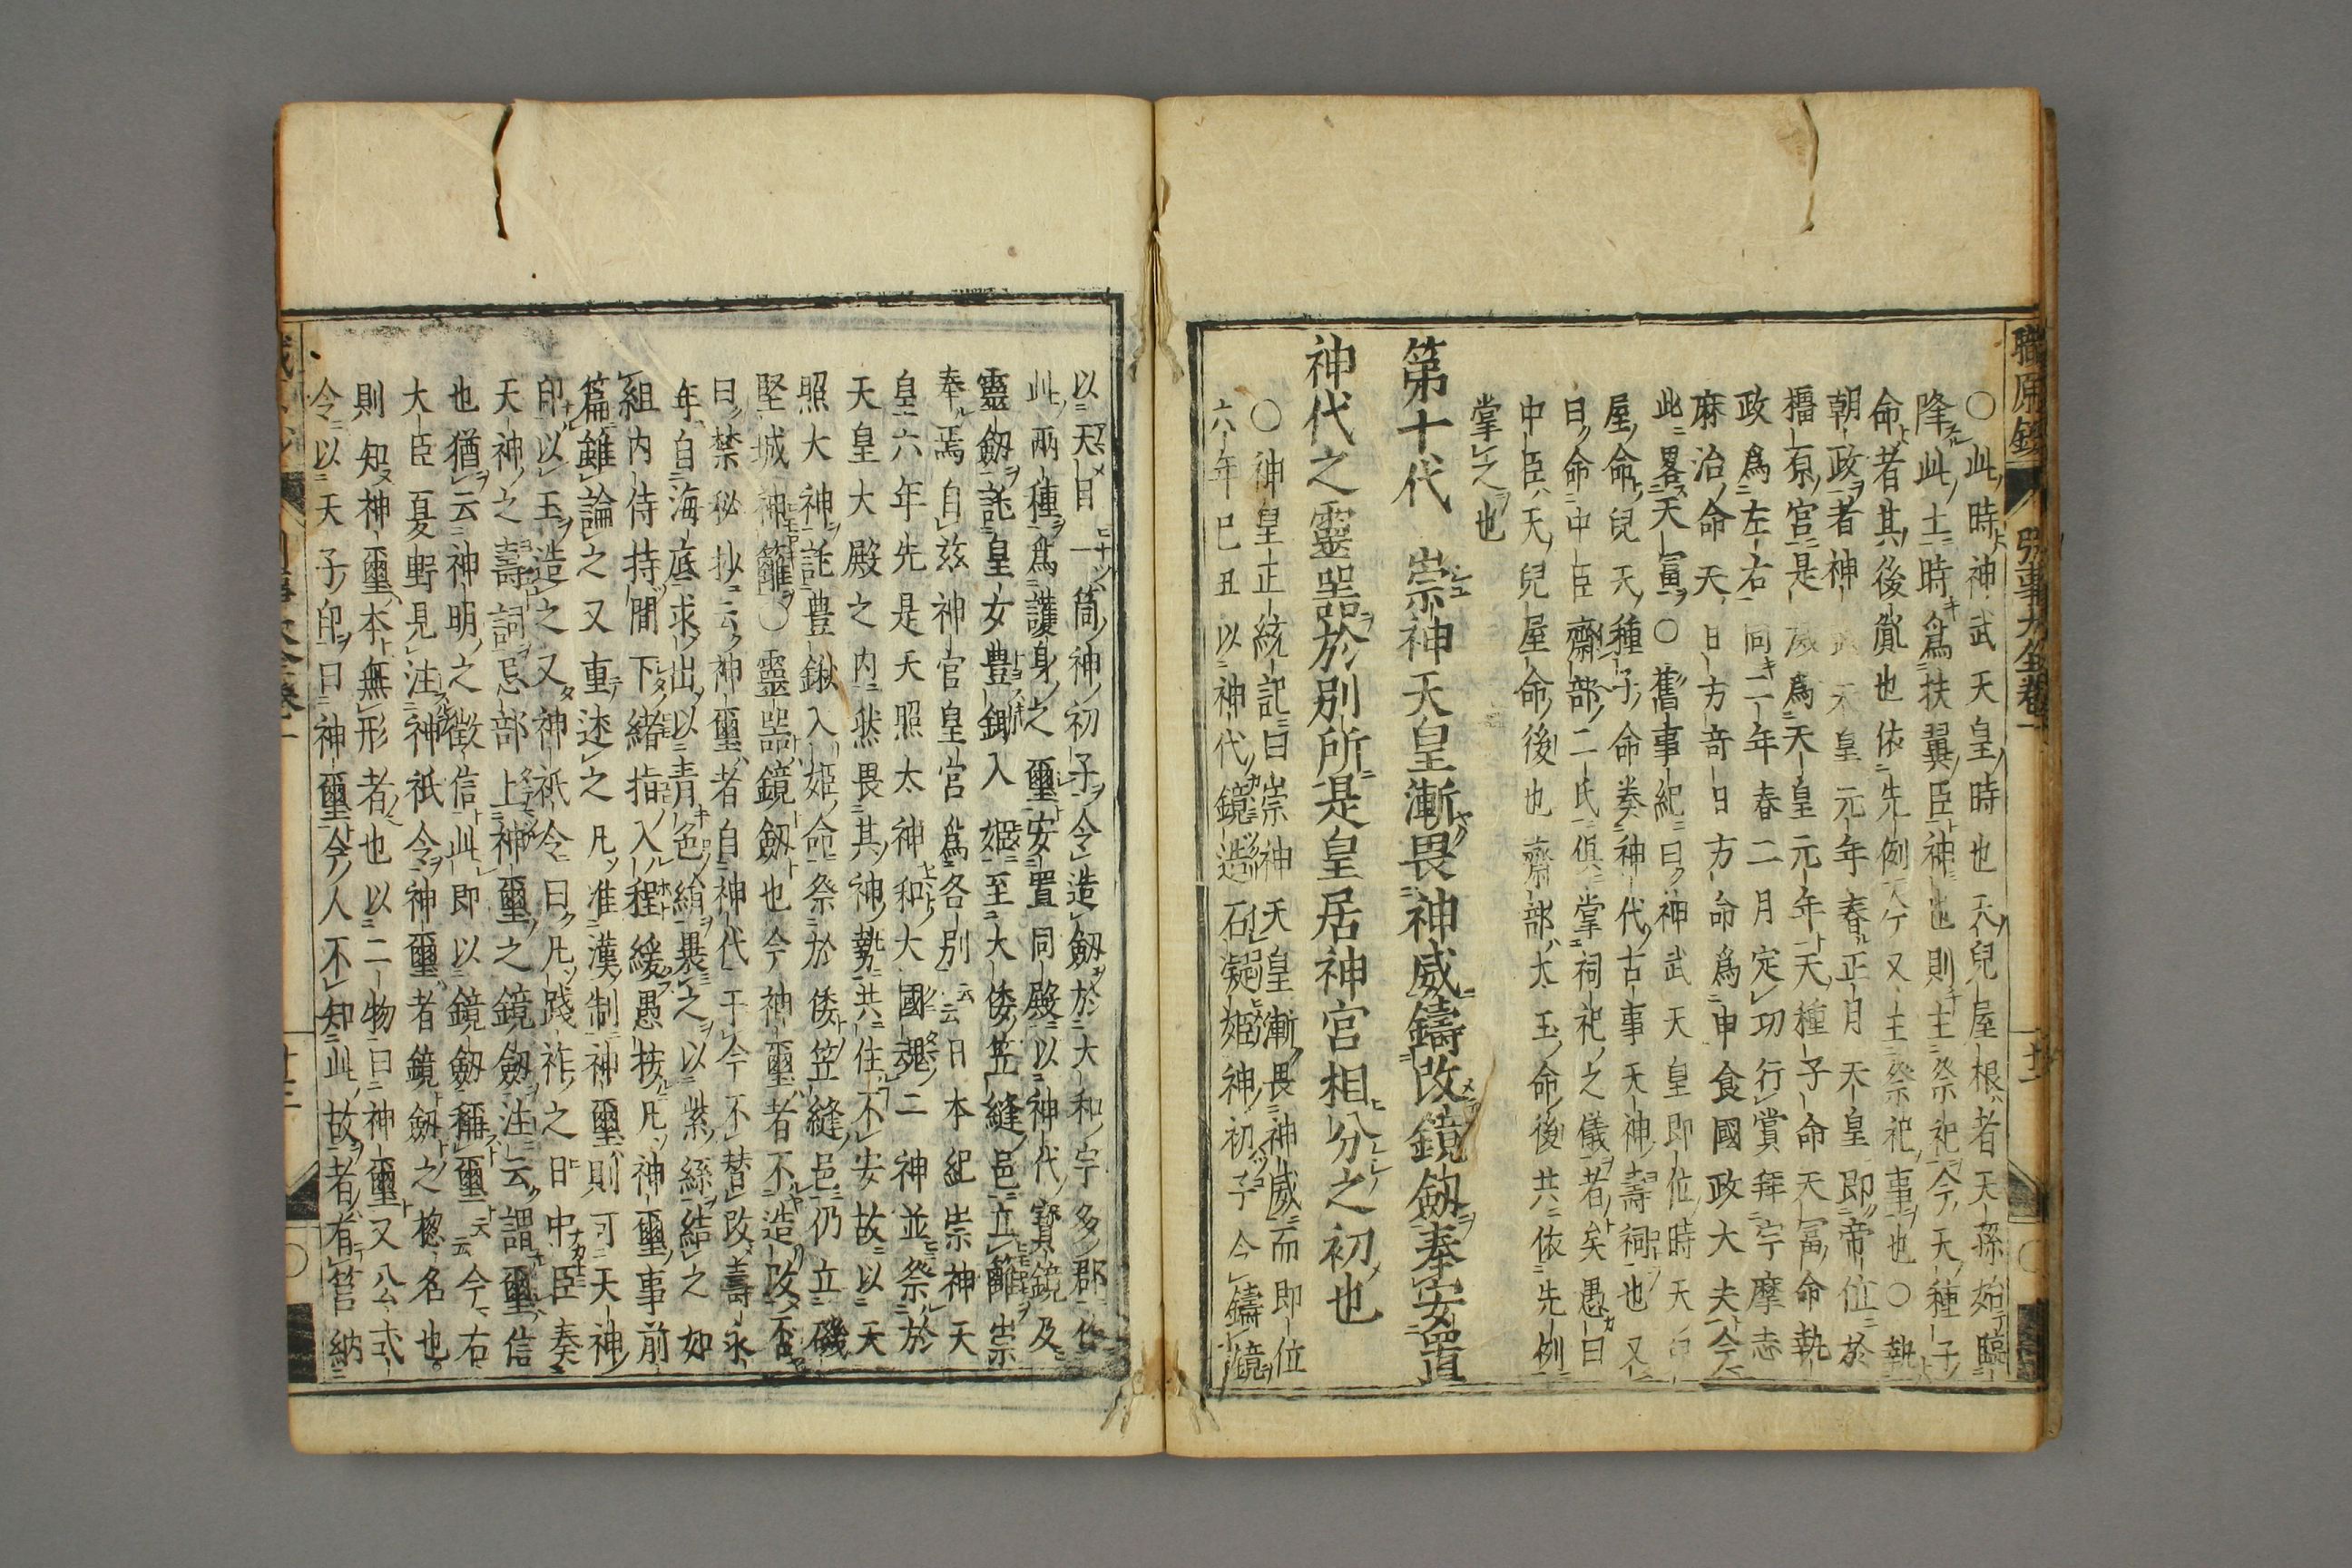 職原鈔
引事大全卷一
十二
○此時神武天皇時也天兒屋根者天孫始臨
降此土時爲扶翼臣神也則主祭祀今天種子
命者其後胤也依先例又主祭祀事也○執
朝政者神武天皇元年春正月天皇即帝位於
橿原宮是爲天皇元年天種子命天冨命執
政爲左右同二年春二月定功行賞拜宇摩志
麻治命天日方奇日方命爲申食國政大夫今
此畧天冨○舊事紀曰神武天皇即位時天兒
屋命兒天種子命奏神代古事天神壽詞也又
曰命中臣齋部二氏倶掌祠祀之儀者矣愚曰
中臣天兒屋命後也齋部太玉命後共依先例
掌之也
第十代 崇神天皇漸畏神威鑄改鏡劔奉安置
神代之靈噐於別所是皇居神宮相分之初也
○神皇正統記曰崇神天皇漸畏神威而即位
六年己丑以神代鏡造石凝姥神初子令鑄鏡
以天目一箇神初子令造劔於大和宇多郡作
此兩種爲護身之璽安置同殿以神代寳鏡及
靈劔託皇女豊鋤入姫至大倭笠縫邑立籬崇
奉焉自玆神宮皇宮爲各別云云日本紀崇神天
皇六年先是天照太神和大國魂二神並祭於
天皇大殿之内然畏其神勢共住不安故以天
照大神託豊鍬入姫命祭於倭笠縫邑仍立磯
堅城神籬○靈噐鏡劔也今神璽者不造改否
曰禁秘抄云神璽者自神代于今不替改壽永
年自海底求出以青色絹裹之以紫絲結之如
組内侍持間下緒指入程緩愚按凡神璽事前
篇雖論之又重述之凡准漢制神璽則可天神
印以玉造之又神祇令曰凡践祚之日中臣奏
天神之壽詞忌部上神璽之鏡劔注云謂璽信
也猶云神明之徴信此即以鏡劔稱璽云云今右
大臣夏野見注神祇令神璽者鏡劔之揔名也
則知神璽本無形者也以二物曰神璽又公式
令以天子印曰神璽今人不知此故者有筥納